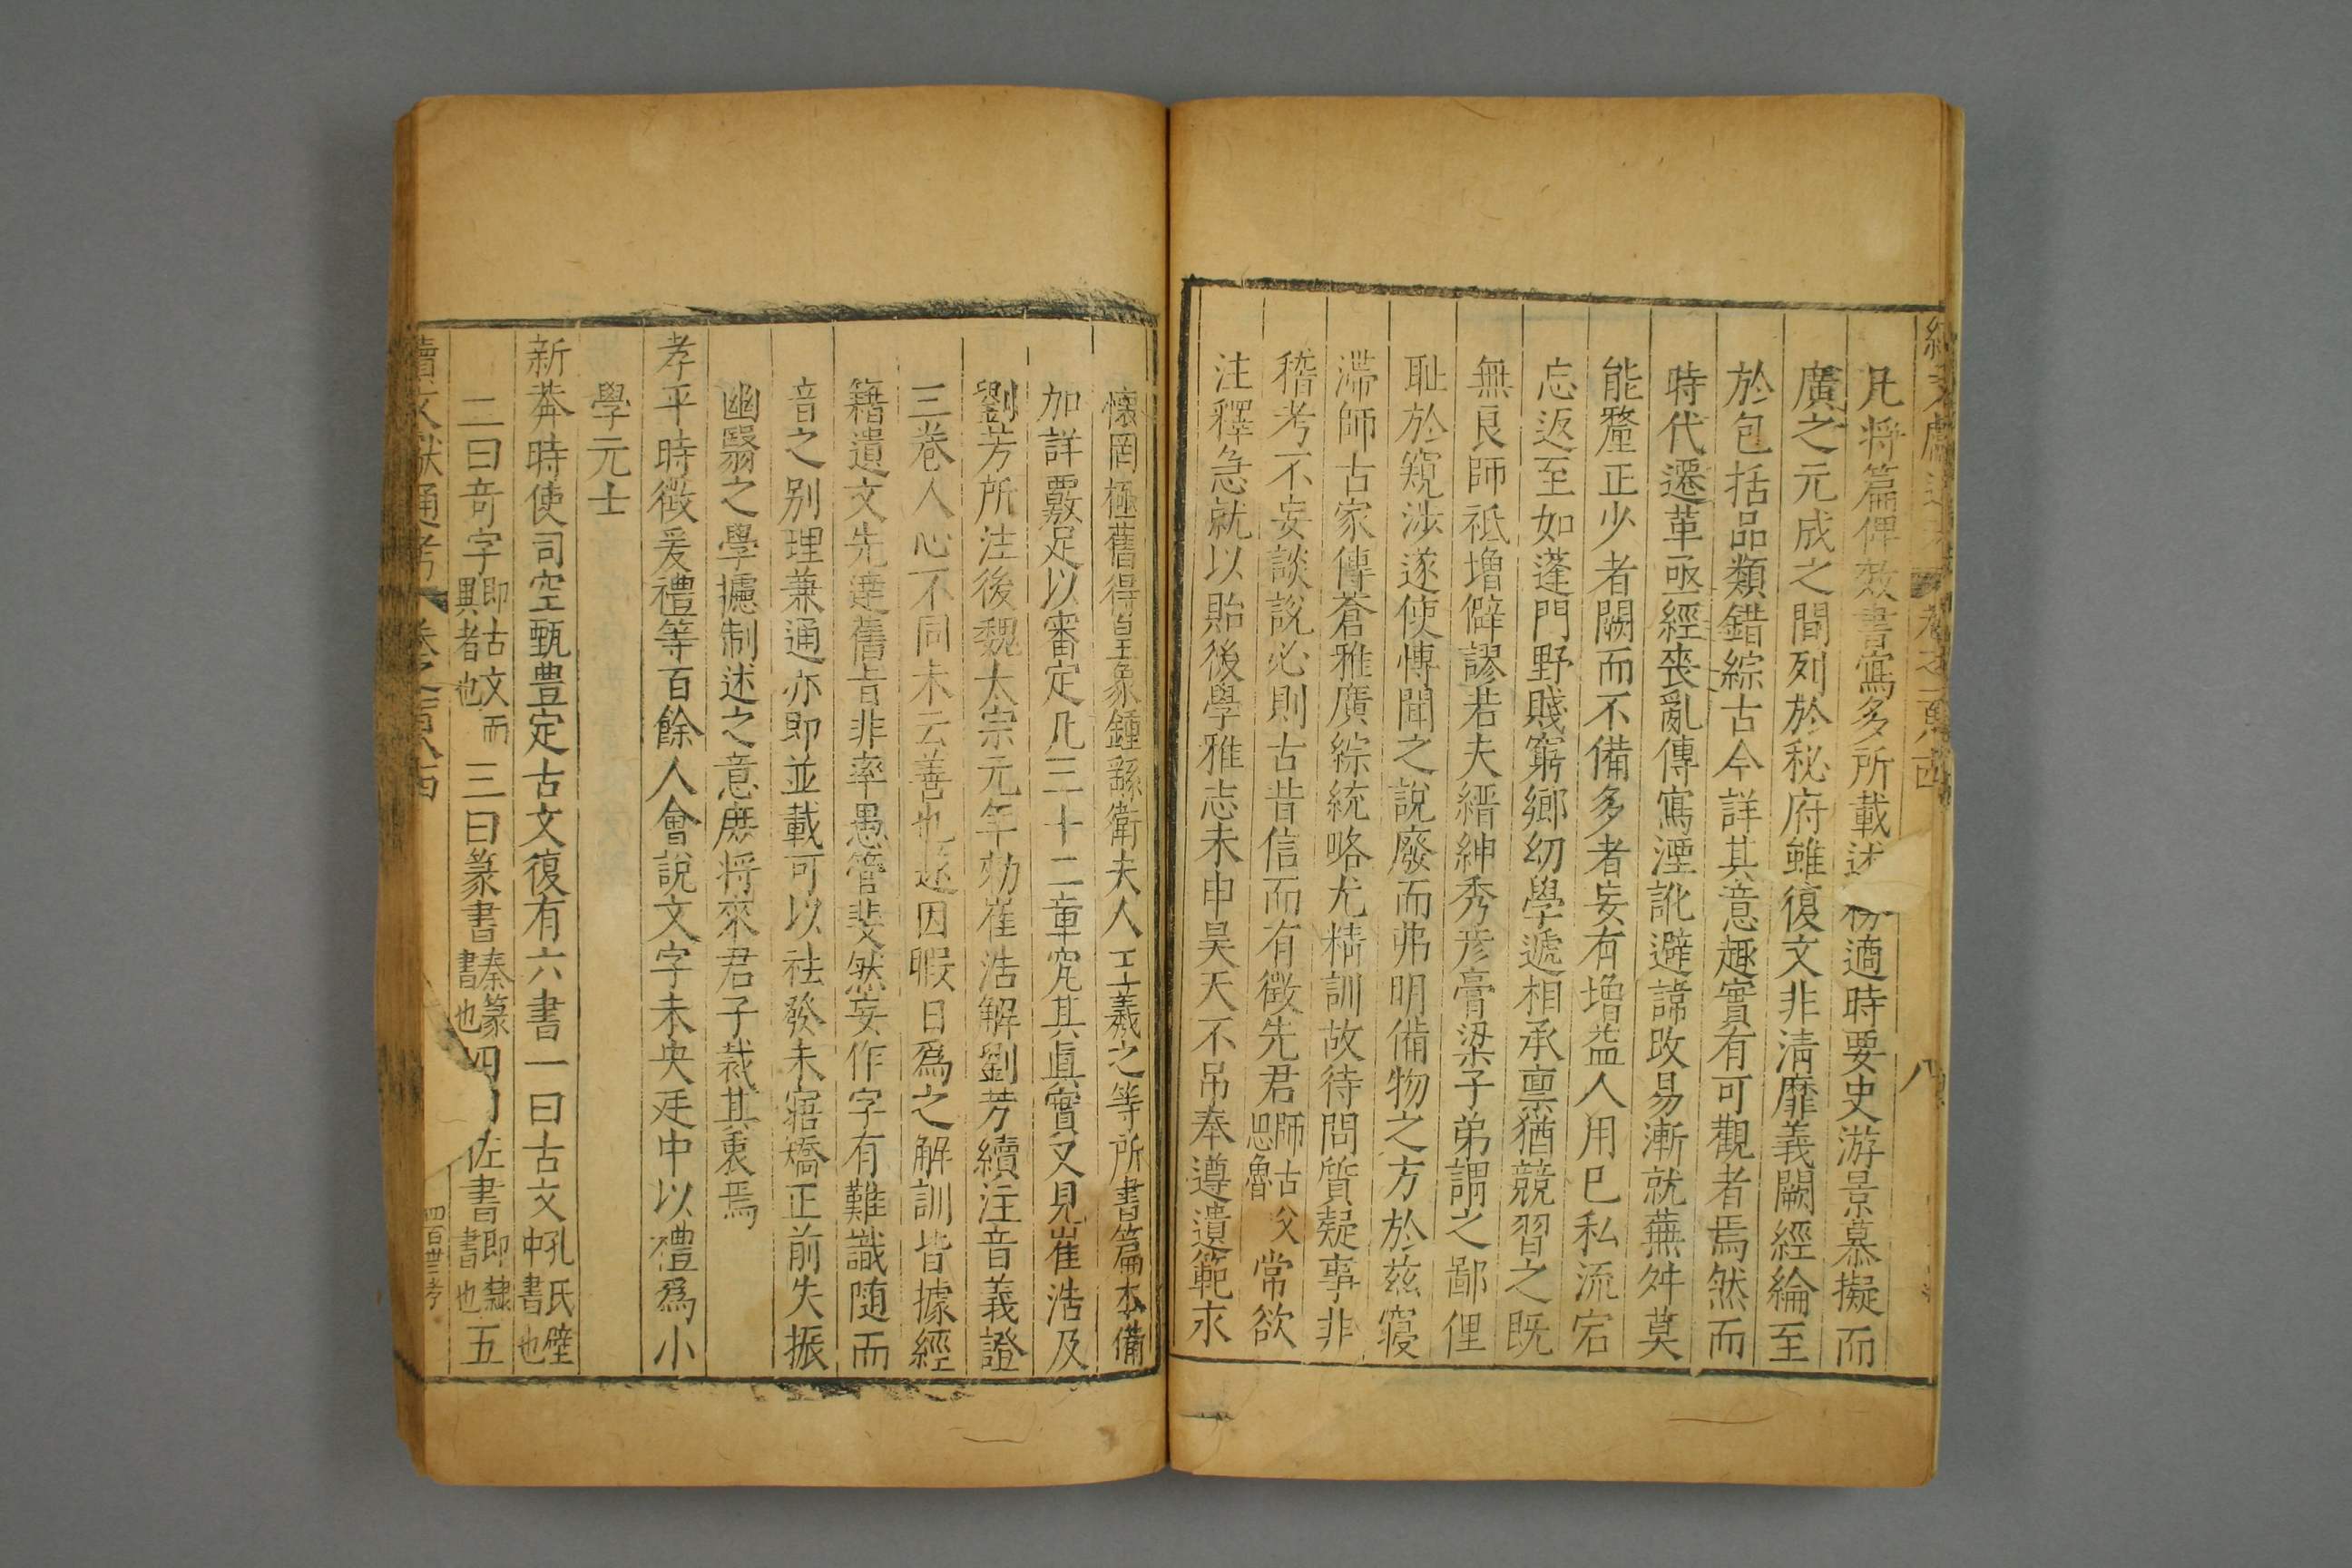 凡將篇俾效書寫多所載述務適時要史游景慕擬而
廣之元成之間列於秘府雖復文非清靡義闕經綸至
於包括品類錯綜古今詳其意趣實有可觀者焉然而
時代遷革亟經喪亂傳寫湮訛避諱改易漸就蕪舛莫
能釐正少者闕而不備多者妄有增益人用已私流宕
忘返至如蓬門野賤窮鄉幼學遞相承禀猶競習之既
無良師祗增僻謬若夫縉紳秀彦膏粱子弟謂之鄙俚
耻於窺涉遂使愽聞之說廢而弗明備物之方於兹寖
滯師古家傳蒼雅廣綜統略尤精訓故待問質疑事非
稽考不妄談說必則古昔信而有徵先君師古父思魯常欲
注釋急就以貽後學雅志未申昊天不吊奉遵遺範永
懷罔極舊得皇象鍾繇衛夫人王羲之等所書篇本備
加詳覈足以審定凡三十二章究其眞實又見崔浩及
劉芳所注後魏太宗元年勑崔浩解劉芳續注音義證
三卷人心不同未云善也遂因暇日爲之解訓皆據經
籍遺文先達舊旨非率愚管斐然妄作字有難識随而
音之别理兼通亦即並載可以祛發未寤矯正前失振
幽翳之學攄制述之意庶将來君子裁其衷焉
孝平時徵爰禮等百餘人會說文字未央廷中以禮爲小
學元士
新莽時使司空甄豊定古文復有六書一曰古文孔氏壁中書也
二曰竒字即古文而異者也三曰篆書秦篆書也四佐書即隸書也五
續文獻通考 卷之一百八十四